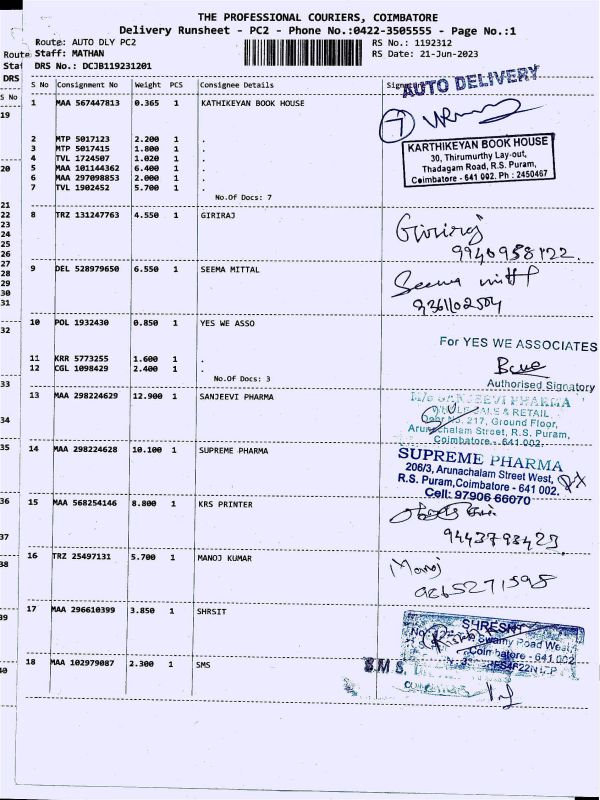 THE PROFESSIONAL COURIERS, COIMBATORE
Delivery Runsheet - PC2 - Phone No.:0422-3505555 - Page No.:1
Route: AUTO DLY PC2 RS No.: 1192312
Route Staff: MATHAN RS Date: 21-Jun-2023
Sta DRS No.: DCJB119231201
DRS
S No Consignment No Weight PCS Consignee Details Sign
AUTO DELIVERY
S No
1 MAA 567447813 0.365 1 KATHIKEYAN BOOK HOUSE
19
7
2 MTP 5017123 2.200 1 .
3 MTP 5017415 1.800 1 .
4 TVL 1724507 1.020 1 .
5 MAA 101144362 6.400 1 .
6 MAA 297098853 2.000 1 .
7 TVL 1902452 5.700 1 .
No.Of Docs: 7
KARTHIKEYAN BOOK HOUSE
30, Thirumurthy Lay-out,
Thadagam Road, R.S. Puram,
Coimbatore - 641 002. Ph : 2450467
20
21
22
23
24
25
26
8 TRZ 131247763 4.550 1 GIRIRAJ
Giriraj
9940958122.
27
28
29
30
31
9 DEL 528979650 6.550 1 SEEMA MITTAL
Seema mittl
9361102504
10 POL 1932430 0.850 1 YES WE ASSO
32
11 KRR 5773255 1.600 1 .
12 CGL 1098429 2.400 1 .
No.Of Docs: 3
For YES WE ASSOCIATES
Authorised Signatory
33
13 MAA 298224629 12.900 1 SANJEEVI PHARMA
34
M/s SANJEEVI PHARMA
WHOLESALE & RETAIL
Door No. 217, Ground Floor,
Arunachalam Street, R.S. Puram,
Coimbatore - 641 002.
35
14 MAA 298224628 10.100 1 SUPREME PHARMA
SUPREME PHARMA
206/3, Arunachalam Street West,
R.S. Puram, Coimbatore - 641 002.
Cell: 97906 66070
36
15 MAA 568254146 8.800 1 KRS PRINTER
37
9443793423.
38
16 TRZ 25497131 5.700 1 MANOJ KUMAR
Manoj
9865271598
39
17 MAA 296610399 3.850 1 SHRSIT
Swamy Road West,
Coimbatore - 641 002
40
18 MAA 102979087 2.300 1 SMS
S.M.S.